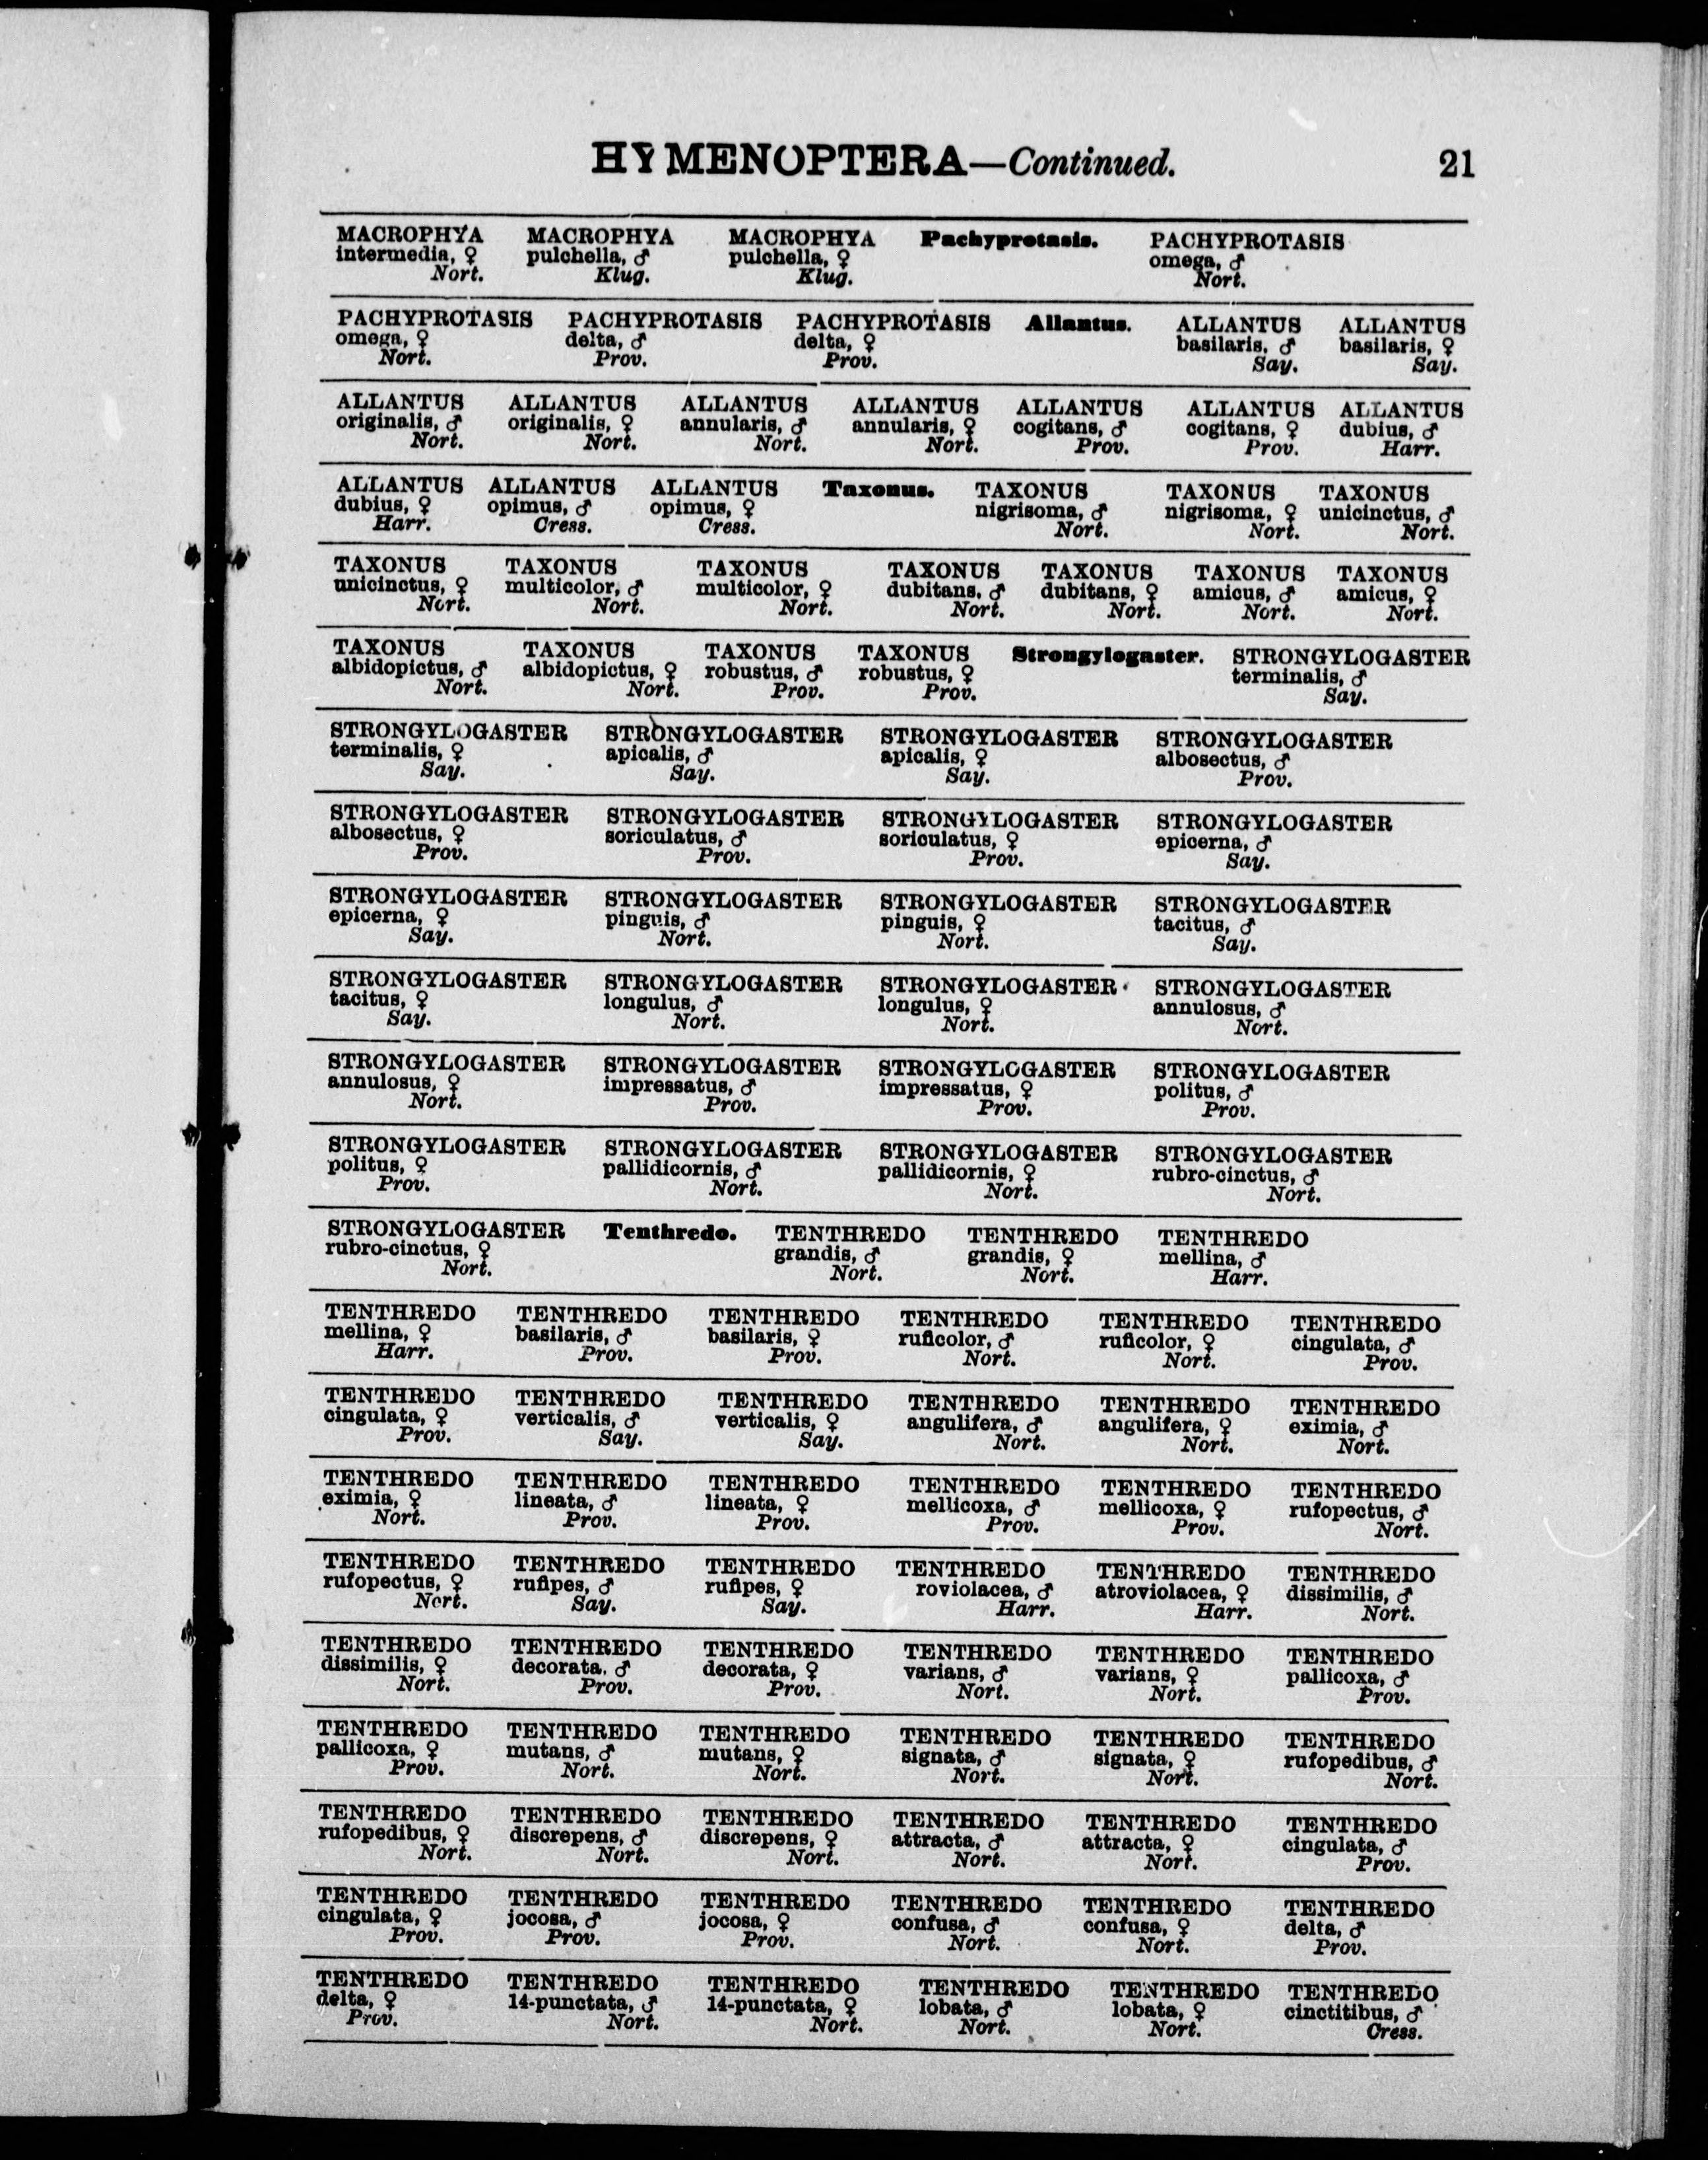 HYMENOPTERA—Continued. 21
MACROPHYA MACROPHYA MACROPHYA Pachyprotasis. PACHYPROTASIS
intermedia, ♀ pulchella, ♂ pulchella, ♀ omega, ♂
Nort. Klug. Klug. Nort.
PACHYPROTASIS PACHYPROTASIS PACHYPROTASIS Allantus. ALLANTUS ALLANTUS
omega, ♀ delta, ♂ delta, ♀ basilaris, ♂ basilaris, ♀
Nort. Prov. Prov. Say. Say.
ALLANTUS ALLANTUS ALLANTUS ALLANTUS ALLANTUS ALLANTUS ALLANTUS
originalis, ♂ originalis, ♀ annularis, ♂ annularis, ♀ cogitans, ♂ cogitans, ♀ dubius, ♂
Nort. Nort. Nort. Nort. Prov. Prov. Harr.
ALLANTUS ALLANTUS ALLANTUS Taxonus. TAXONUS TAXONUS TAXONUS
dubius, ♀ opimus, ♂ opimus, ♀ nigrisoma, ♂ nigrisoma, ♀ unicinctus, ♂
Harr. Cress. Cress. Nort. Nort. Nort.
TAXONUS TAXONUS TAXONUS TAXONUS TAXONUS TAXONUS TAXONUS
unicinctus, ♀ multicolor, ♂ multicolor, ♀ dubitans. ♂ dubitans, ♀ amicus, ♂ amicus, ♀
Nort. Nort. Nort. Nort. Nort. Nort. Nort.
TAXONUS TAXONUS TAXONUS TAXONUS Strongylogaster. STRONGYLOGASTER
albidopictus, ♂ albidopictus, ♀ robustus, ♂ robustus, ♀ terminalis, ♂
Nort. Nort. Prov. Prov. Say.
STRONGYLOGASTER STRONGYLOGASTER STRONGYLOGASTER STRONGYLOGASTER
terminalis, ♀ apicalis, ♂ apicalis, ♀ albosectus, ♂
Say. Say. Say. Prov.
STRONGYLOGASTER STRONGYLOGASTER STRONGYLOGASTER STRONGYLOGASTER
albosectus, ♀ soriculatus, ♂ soriculatus, ♀ epicerna, ♂
Prov. Prov. Prov. Say.
STRONGYLOGASTER STRONGYLOGASTER STRONGYLOGASTER STRONGYLOGASTER
epicerna, ♀ pinguis, ♂ pinguis, ♀ tacitus, ♂
Say. Nort. Nort. Say.
STRONGYLOGASTER STRONGYLOGASTER STRONGYLOGASTER STRONGYLOGASTER
tacitus, ♀ longulus, ♂ longulus, ♀ annulosus, ♂
Say. Nort. Nort. Nort.
STRONGYLOGASTER STRONGYLOGASTER STRONGYLOGASTER STRONGYLOGASTER
annulosus, ♀ impressatus, ♂ impressatus, ♀ politus, ♂
Nort. Prov. Prov. Prov.
STRONGYLOGASTER STRONGYLOGASTER STRONGYLOGASTER STRONGYLOGASTER
politus, ♀ pallidicornis, ♂ pallidicornis, ♀ rubro-cinctus, ♂
Prov. Nort. Nort. Nort.
STRONGYLOGASTER Tenthredo. TENTHREDO TENTHREDO TENTHREDO
rubro-cinctus, ♀ grandis, ♂ grandis, ♀ mellina, ♂
Nort. Nort. Nort. Harr.
TENTHREDO TENTHREDO TENTHREDO TENTHREDO TENTHREDO TENTHREDO
mellina, ♀ basilaris, ♂ basilaris, ♀ ruficolor, ♂ ruficolor, ♀ cingulata, ♂
Harr. Prov. Prov. Nort. Nort. Prov.
TENTHREDO TENTHREDO TENTHREDO TENTHREDO TENTHREDO TENTHREDO
cingulata, ♀ verticalis, ♂ verticalis, ♀ angulifera, ♂ angulifera, ♀ eximia, ♂
Prov. Say. Say. Nort. Nort. Nort.
TENTHREDO TENTHREDO TENTHREDO TENTHREDO TENTHREDO TENTHREDO
eximia, ♀ lineata, ♂ lineata, ♀ mellicoxa, ♂ mellicoxa, ♀ rufopectus, ♂
Nort. Prov. Prov. Prov. Prov. Nort.
TENTHREDO TENTHREDO TENTHREDO TENTHREDO TENTHREDO TENTHREDO
rufopectus, ♀ rufipes, ♂ rufipes, ♀ roviolacea, ♂ atroviolacea, ♀ dissimilis, ♂
Nort. Say. Say. Harr. Harr. Nort.
TENTHREDO TENTHREDO TENTHREDO TENTHREDO TENTHREDO TENTHREDO
dissimilis, ♀ decorata. ♂ decorata, ♀ varians, ♂ varians, ♀ pallicoxa, ♂
Nort. Prov. Prov. Nort. Nort. Prov.
TENTHREDO TENTHREDO TENTHREDO TENTHREDO TENTHREDO TENTHREDO
pallicoxa, ♀ mutans, ♂ mutans, ♀ signata, ♂ signata, ♀ rufopedibus, ♂
Prov. Nort. Nort. Nort. Nort. Nort.
TENTHREDO TENTHREDO TENTHREDO TENTHREDO TENTHREDO TENTHREDO
rufopedibus, ♀ discrepens, ♂ discrepens, ♀ attracta, ♂ attracta, ♀ cingulata, ♂
Nort. Nort. Nort. Nort. Nort. Prov.
TENTHREDO TENTHREDO TENTHREDO TENTHREDO TENTHREDO TENTHREDO
cingulata, ♀ jocosa, ♂ jocosa, ♀ confusa, ♂ confusa, ♀ delta, ♂
Prov. Prov. Prov. Nort. Nort. Prov.
TENTHREDO TENTHREDO TENTHREDO TENTHREDO TENTHREDO TENTHREDO
delta, ♀ 14-punctata, ♂ 14-punctata, ♀ lobata, ♂ lobata, ♀ cinctitibus, ♂
Prov. Nort. Nort. Nort. Nort. Cress.